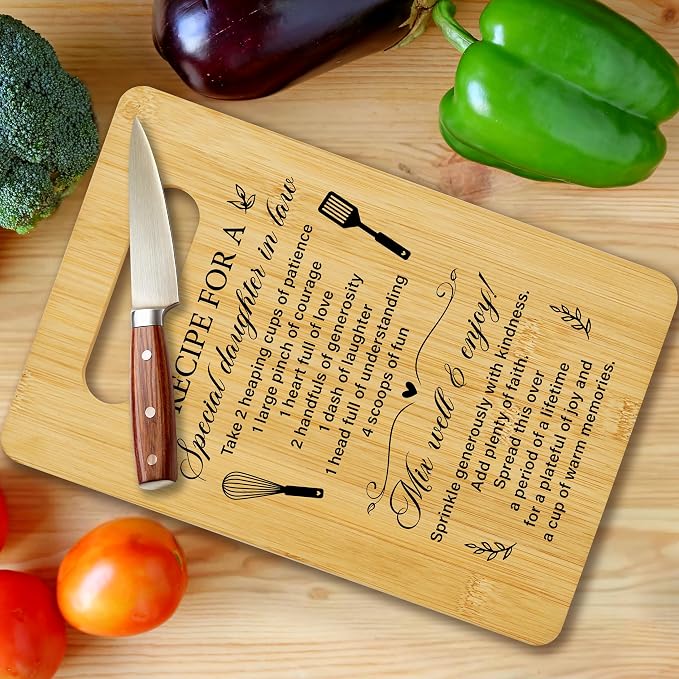 RECIPE FOR A
Special daughter in law
Take 2 heaping cups of patience
1 large pinch of courage
1 heart full of love
2 handfuls of generosity
1 dash of laughter
1 head full of understanding
4 scoops of fun
Mix well & enjoy!
Sprinkle generously with kindness.
Add plenty of faith.
Spread this over
a period of a lifetime
for a plateful of joy and
a cup of warm memories.